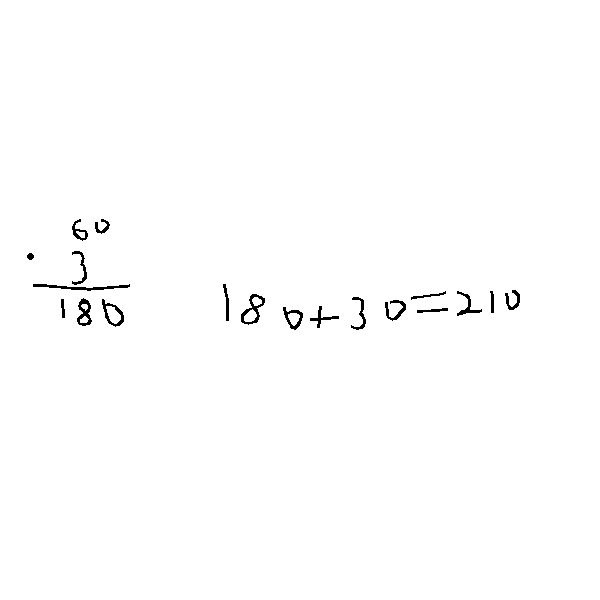 60
· 3
180
180+30=210